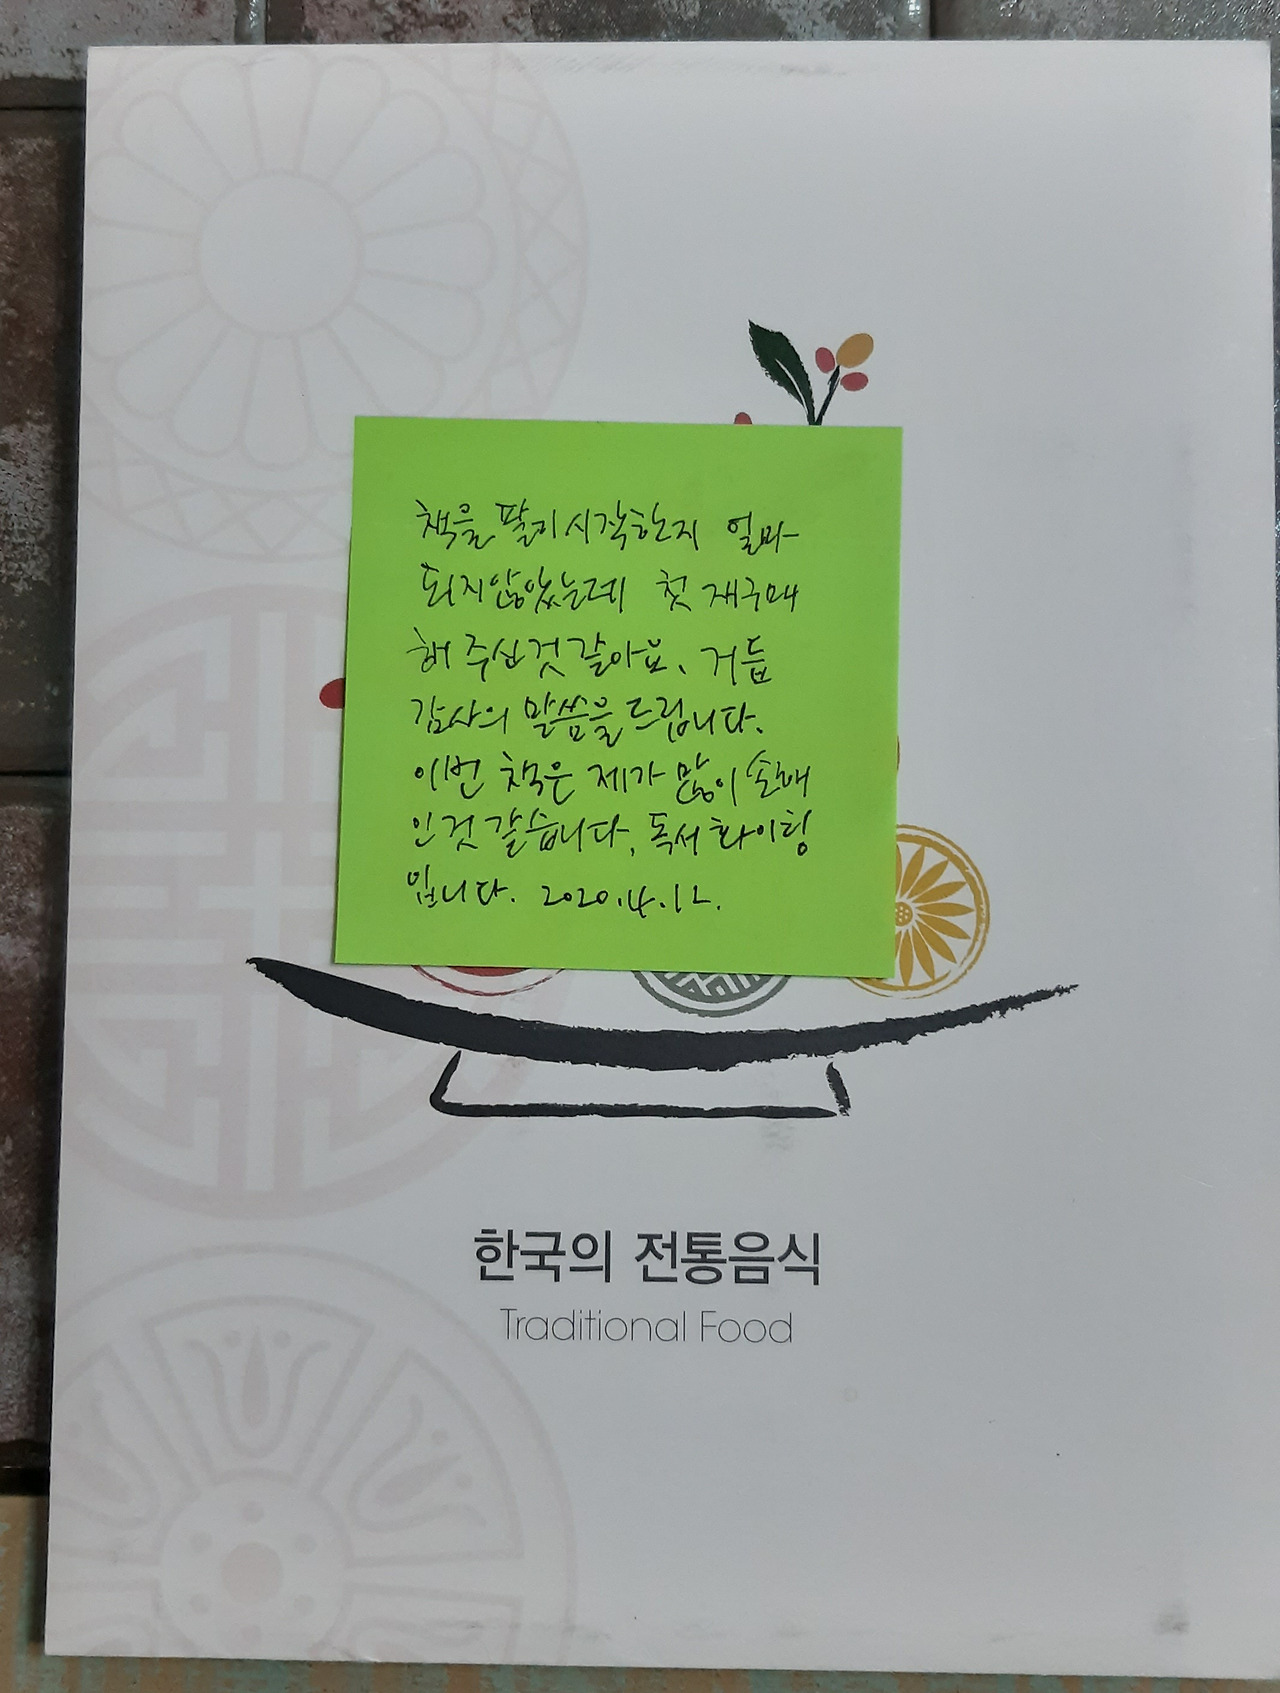 책을 팔기 시작한지 얼마
되지않았는데 첫 재구매
해 주신것 같아요. 거듭
감사의 말씀을 드립니다.
이번 책은 제가 많이 손해
인것 같습니다. 독서 화이팅
입니다. 2020.4.12.
한국의 전통음식
Traditional Food